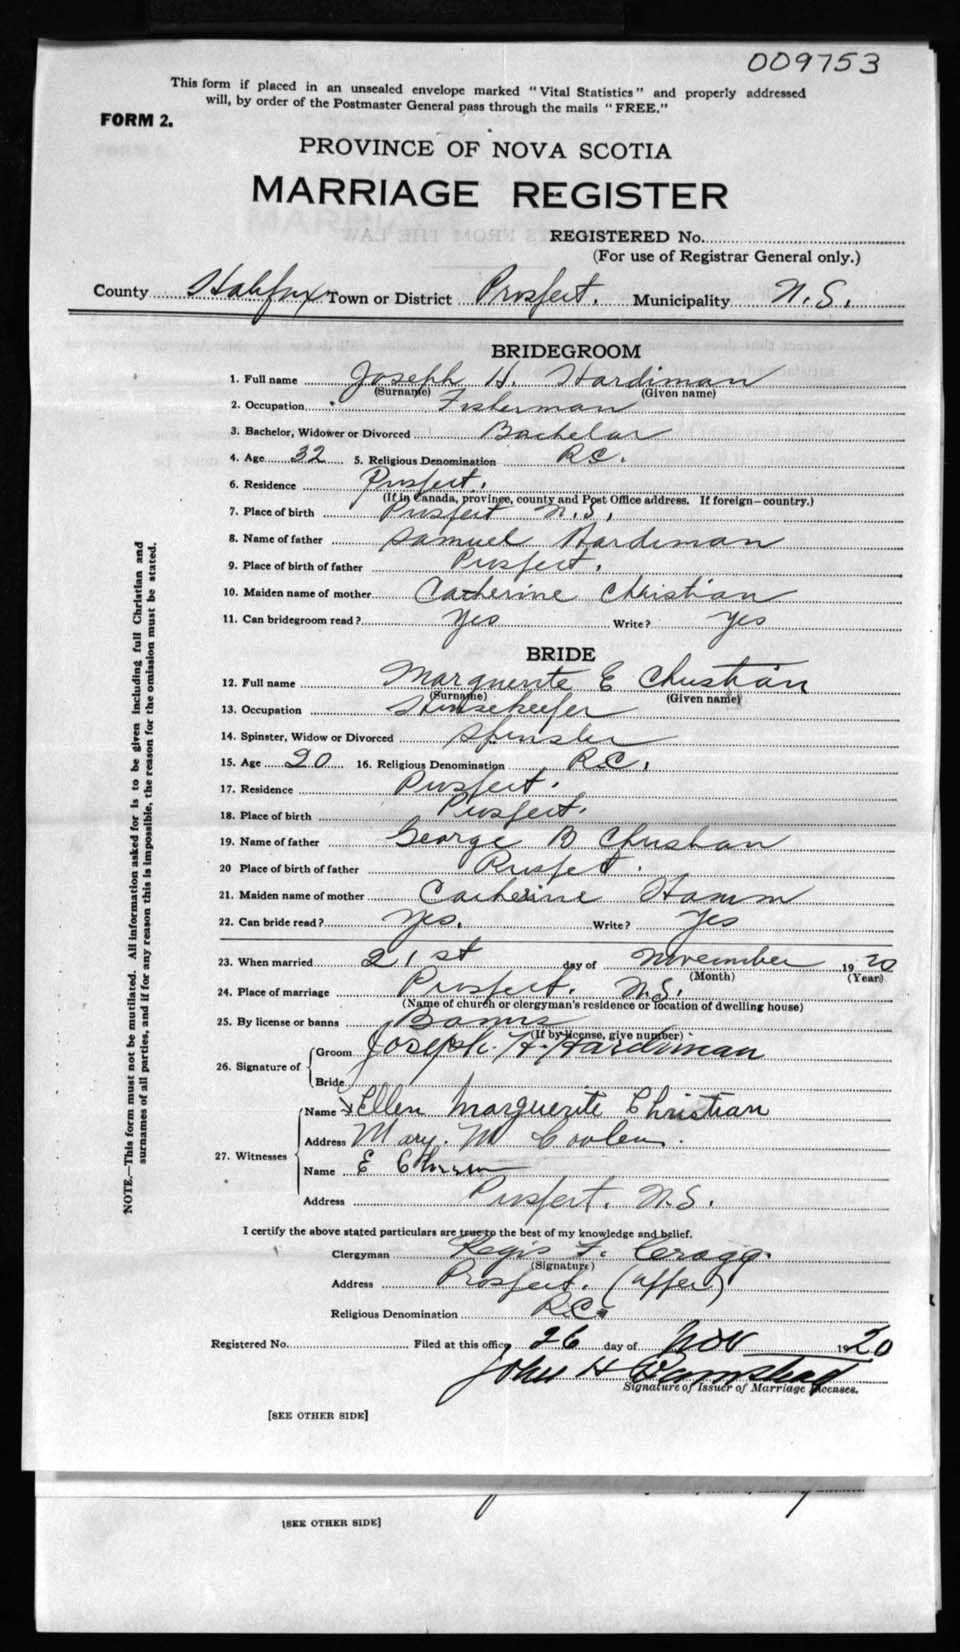 009753
This form if placed in an unsealed envelope marked "Vital Statistics" and properly addressed
will, by order of the Postmaster General pass through the mails "FREE."
FORM 2.
PROVINCE OF NOVA SCOTIA
MARRIAGE REGISTER
REGISTERED No.
(For use of Registrar General only.)
County Halifax Town or District Prospect. Municipality N.S.
BRIDEGROOM
1. Full name Joseph H. Hardiman
(Surname) (Given name)
2. Occupation Fisherman
3. Bachelor, Widower or Divorced Bachelor
4. Age 32 5. Religious Denomination R.C.
6. Residence Prospect.
(If in Canada, province, county and Post Office address. If foreign—country.)
7. Place of birth Prospect N.S.
8. Name of father Samuel Hardiman
9. Place of birth of father Prospect.
10. Maiden name of mother Catherine Christian
11. Can bridegroom read? Yes Write? Yes
BRIDE
12. Full name Marguerite E Christian
(Surname) (Given name)
13. Occupation Housekeeper
14. Spinster, Widow or Divorced Spinster
15. Age 20 16. Religious Denomination R.C.
17. Residence Prospect.
18. Place of birth Prospect.
19. Name of father George B Christian
20 Place of birth of father Prospect.
21. Maiden name of mother Catherine Hamm
22. Can bride read? Yes. Write? Yes
23. When married 21st day of November 1920
(Month) (Year)
24. Place of marriage Prospect. N.S.
(Name of church or clergyman's residence or location of dwelling house)
25. By license or banns Banns
(If by license, give number)
26. Signature of Groom Joseph. H. Hardiman
Bride
27. Witnesses
Name Ellen Marguerite Christian
Address Mary. M
Name E
Address Prospect. N.S.
I certify the above stated particulars are true to the best of my knowledge and belief.
Clergyman Regis F. Cragg.
(Signature)
Address Prospect. (Upper)
Religious Denomination R.C.
Registered No. Filed at this office 26 day of Nov 1920
John H
Signature of Issuer of Marriage Licenses.
[SEE OTHER SIDE]
NOTE.—This form must not be mutilated. All information asked for is to be given including full Christian and
surnames of all parties, and if for any reason this is impossible, the reason for the omission must be stated.
[SEE OTHER SIDE]